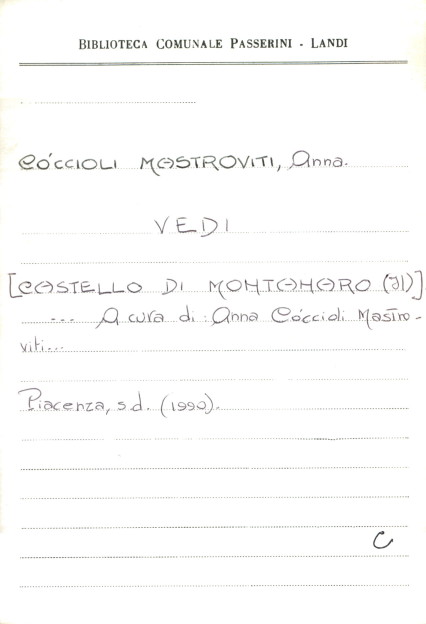 BIBLIOTECA COMUNALE PASSERINI - LANDI
CÓCCIOLI MASTROVITI, Anna.
VEDI
[CASTELLO DI MONTANARO (Il)]
... A cura di: Anna Cóccioli Mastro-
viti...
Piacenza, s.d. (1990).
C